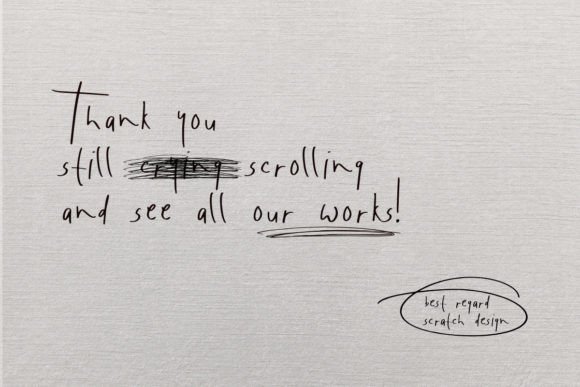 Thank you
still crying scrolling
and see all our works!
best regard
scratch design